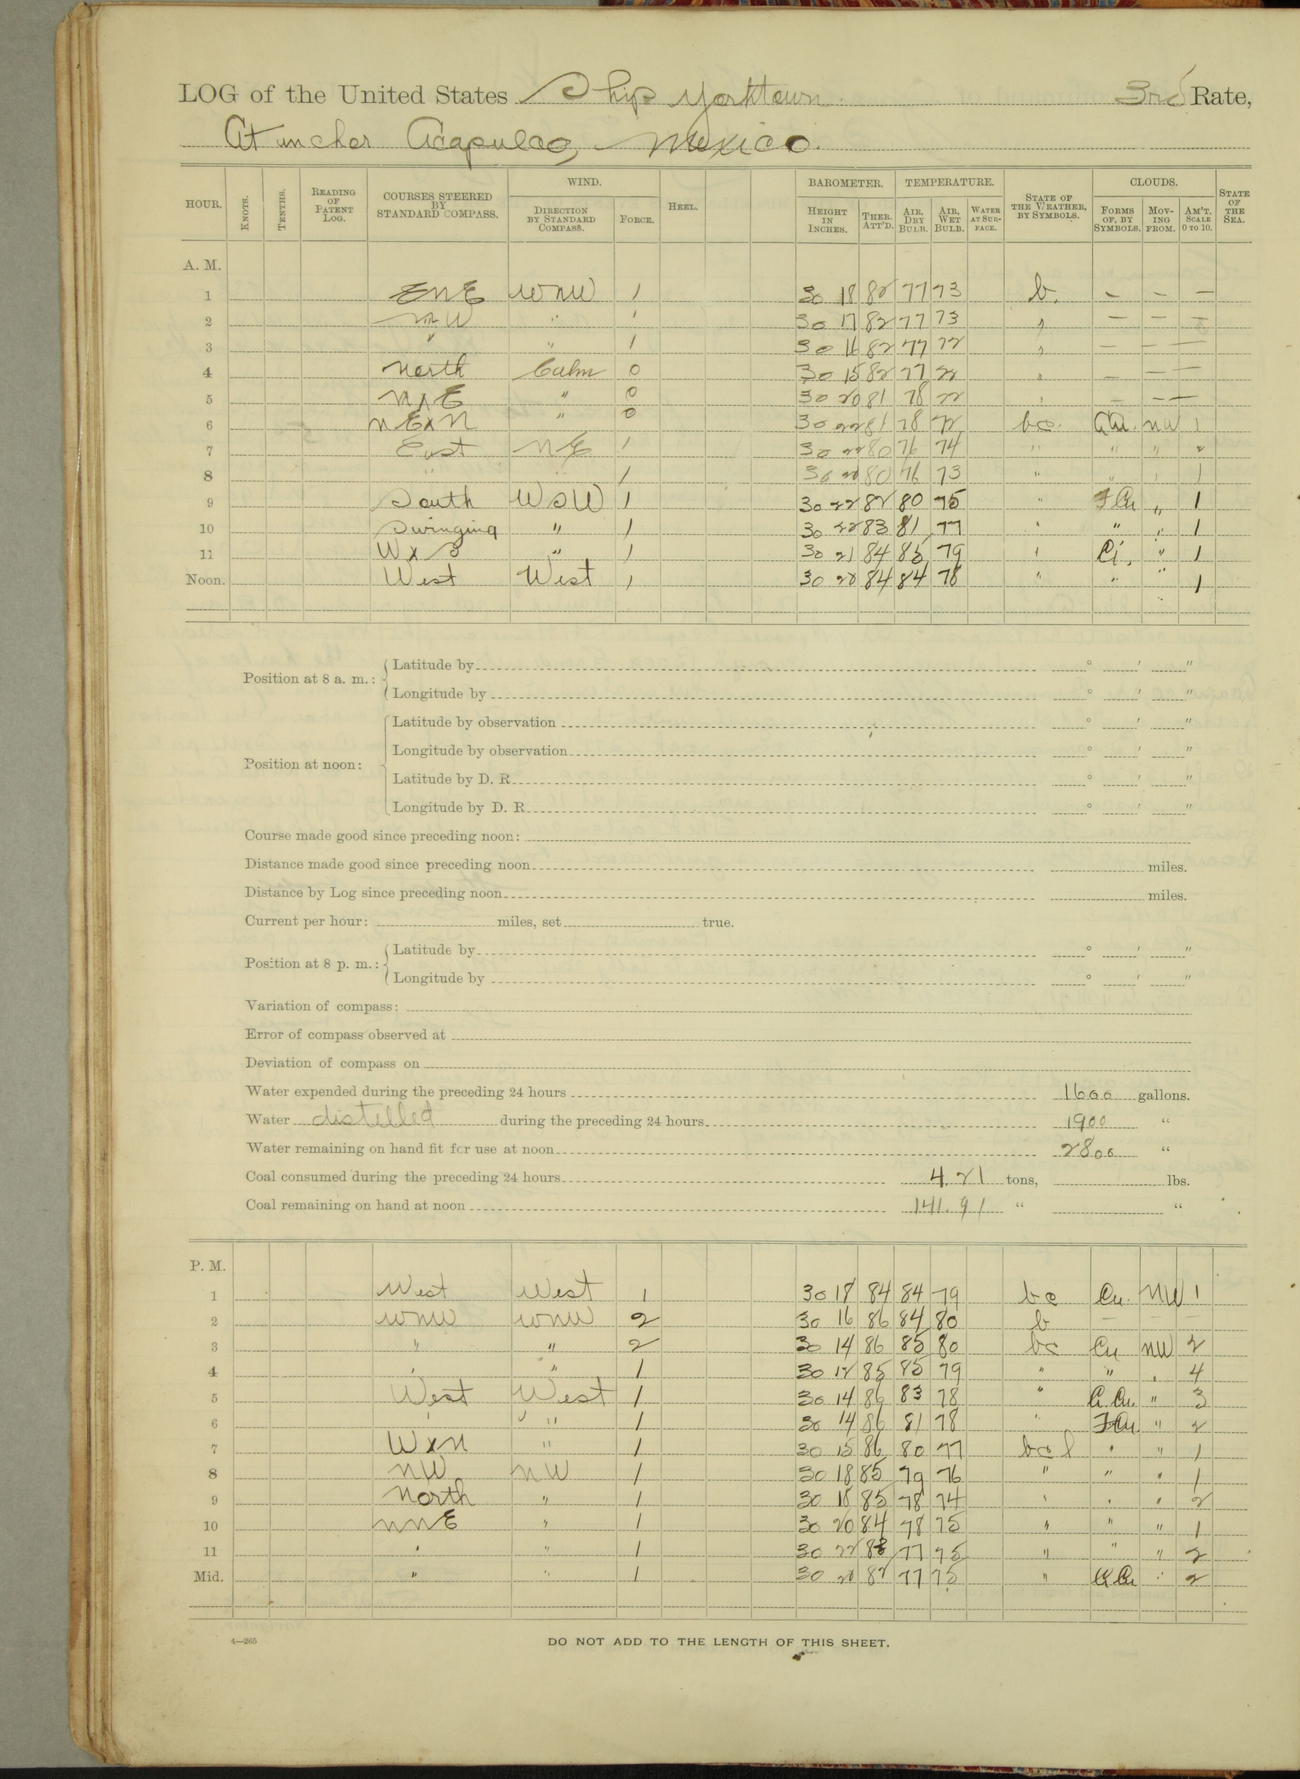 LOG of the United States Ship Yorktown 3rd Rate,
At anchor Acapulco, Mexico.
HOUR. KNOTS. TENTHS. READING OF PATENT LOG. COURSES STEERED BY STANDARD COMPASS. WIND. DIRECTION BY STANDARD COMPASS. FORCE. HEEL. BAROMETER. HEIGHT IN INCHES. THER. ATT'D. TEMPERATURE. AIR, DRY BULB. AIR, WET BULB. WATER AT SURFACE. STATE OF THE WEATHER, BY SYMBOLS. CLOUDS. FORMS OF, BY SYMBOLS. MOVING FROM. AM'T. SCALE 0 TO 10. STATE OF THE SEA.
A. M.
1 ENE WNW 1 30 18 82 77 73 b. — — —
2 NW " 1 30 17 82 77 73 " — — —
3 " " 1 30 16 82 77 72 " — — —
4 North Calm 0 30 15 82 77 72 " — — —
5 NxE " 0 30 20 81 78 72 " — — —
6 NExN " 0 30 22 81 78 72 bc. NW 1
7 East NE 1 30 22 80 76 74 " " " 2
8 " 1 30 20 80 76 73 " " " 1
9 South WSW 1 30 22 82 80 75 " " 1
10 Swinging " 1 30 22 83 81 77 " " " 1
11 WxS " 1 30 21 84 85 79 " Ci. " 1
Noon. West West 1 30 20 84 84 78 " " " 1
Position at 8 a. m.: Latitude by ° ′ ″
Longitude by ° ′ ″
Position at noon: Latitude by observation ° ′ ″
Longitude by observation ° ′ ″
Latitude by D. R. ° ′ ″
Longitude by D. R. ° ′ ″
Course made good since preceding noon:
Distance made good since preceding noon miles.
Distance by Log since preceding noon miles.
Current per hour: miles, set true.
Position at 8 p. m.: Latitude by ° ′ ″
Longitude by ° ′ ″
Variation of compass:
Error of compass observed at
Deviation of compass on
Water expended during the preceding 24 hours 1600 gallons.
Water distilled during the preceding 24 hours 1900 "
Water remaining on hand fit for use at noon 2800 "
Coal consumed during the preceding 24 hours 4.21 tons, lbs.
Coal remaining on hand at noon 141.91 " "
P. M.
1 West West 1 30 18 84 84 79 bc Cu. NW 1
2 WNW WNW 2 30 16 86 84 80 b — — —
3 " " 2 30 14 86 85 80 bc Cu NW 2
4 " " 1 30 12 85 85 79 " " " 4
5 West West 1 30 14 86 83 78 " " 3
6 " " 1 30 14 86 81 78 " " 2
7 WxN " 1 30 15 86 80 77 bc l " " 1
8 NW NW 1 30 18 85 79 76 " " " 1
9 North " 1 30 18 85 78 74 " " " 2
10 NNE " 1 30 20 84 78 75 " " " 1
11 " " 1 30 22 83 77 75 " " " 2
Mid. " " 1 30 20 82 77 75 " " 2
4—265 DO NOT ADD TO THE LENGTH OF THIS SHEET.